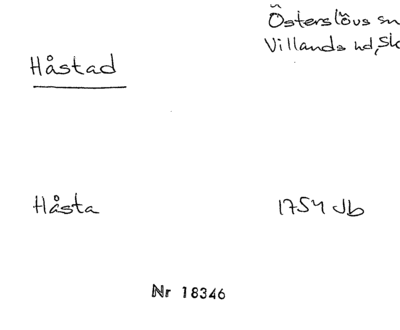 Österslövs sn
Villands hd, Sk
Håstad
Håsta 1754 Jb
Nr 18346